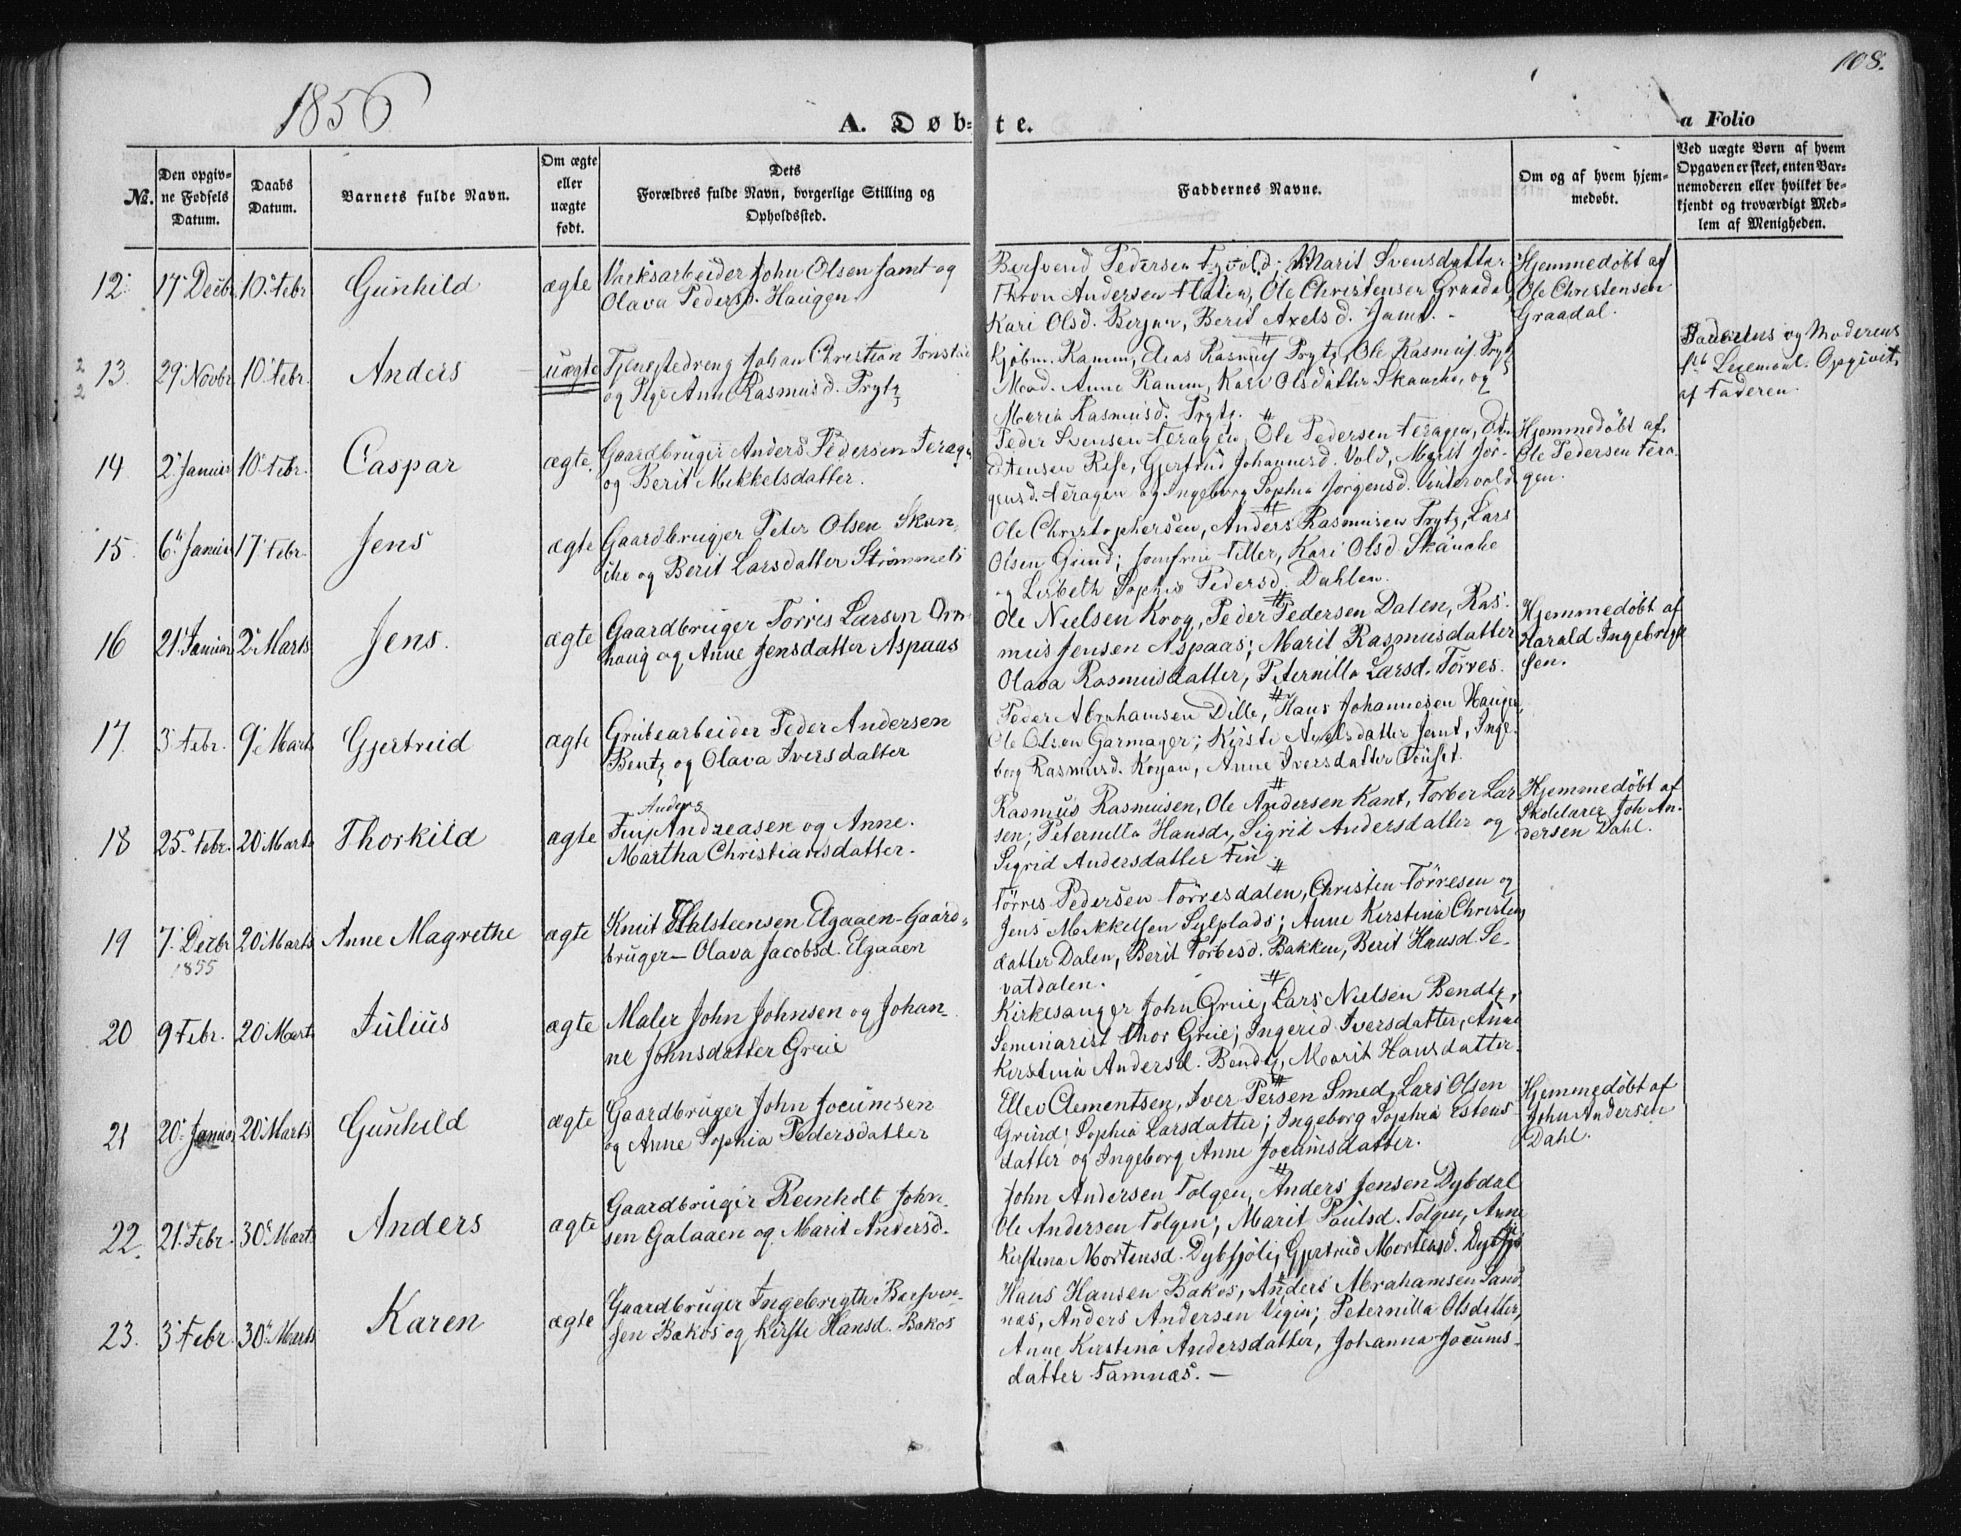 108.
1856
A. Døb= te.
a Folio
No.
Den opgiv-
ne Fødsels
Datum.
Daabs
Datum.
Barnets fulde Navn.
Om ægte
eller
uægte
født.
Dets
Forældres fulde Navn, borgerlige Stilling og
Opholdssted.
Faddernes Navne.
Om og af hvem hjem-
medøbt.
Ved uægte Børn af hvem
Opgaven er skeet, enten Bar-
nemoderen eller hvilket be-
kjendt og troværdigt Med-
lem af Menigheden.
12. 17 Decbr. 10 Febr. Gunhild ægte
Værksarbeider John Olsen Jamt og
Olava Pedersd. Haugen
Bersvend Pedersen Marit Svensdatter
Thron Andersen Flaten, Ole Christensen Graadal,
Kari Olsd. Berjun, Berit Axelsd. Jamt. -
Hjemmedøbt af
Ole Christensen
Graadal.
13. 29 Novbr. 10 Febr. Anders uægte
Tjenestedreng Johan Christian
og Pige Anne Rasmusd. Prytz
Kjøbm. Ramm, Elias Rasmus Prytz, Ole Rasmus Prytz
Mad. Anne Ramm, Kari Olsdatter Skancke, og
Maria Rasmusd. Prytz.
Faderens og Moderens
1ste Leiermaal. Opgivet
af Faderen.
14 2 Januar 10 Febr. Caspar ægte.
Gaardbruger Anders Pedersen Feragen
og Berit Mikkelsdatter.
Peder Svensen Feragen, Ole Pedersen Feragen,
Estensen Rise, Gjertrud Johannesd. Vold, Marit Jør-
gensd. Feragen og Ingeborg Sophia Jørgensd. Vintervold
Hjemmedøbt af
Ole Pedersen Fera-
gen.
15. 6 Januar 17 Febr. Jens ægte
Gaardbruger Peter Olsen Skan-
cke og Berit Larsdatter Strømmeli
Ole Christophersen, Anders Rasmusen Prytz, Lars
Olsen Grind; Jomfrue Tiller, Kari Olsd Skancke
og Lisbeth Sophie Pedersd. Dahlen.
16 21 Januar 2 Marts Jens. ægte
Gaardbruger Tørris Larsen Orn-
houg og Anne Jensdatter Aspaas
Ole Nielsen Krog, Peder Pedersen Dalen, Ras-
mus Jensen Aspaas; Marit Rasmusdatter
Olava Rasmusdatter, Peternilla Larsd. Tørres.
Hjemmedøbt af
Harald Ingebrigt
sen.
17. 3 Febr. 9 Marts Gjertrud ægte
Grubearbeider Peder Andersen
Bentz og Olava Iversdatter
Peder Abrahamsen Dille, Hans Johannesen Haugen,
Ole Olsen Garmager; Kirsti Axelsdatter Jamt, Inge-
borg Rasmusd. Kojan, Anne Iversdatter Tønset.
18 25 Febr. 20 Marts Thorkild ægte
Anders
Fin Andreasen og Anne
Martha Christiansdatter.
Rasmus Rasmusen, Ole Andersen Kant, Torber Lar-
sen; Peternilla Hansd, Sigrid Andersdatter og
Sigrid Andersdatter Fin
Hjemmedøbt af
Skolelærer Joh An-
dersen Dahl.
19 7 Decbr 1855 20 Marts Anne Magrethe ægte
Knut Halsteensen Elgaaen-Gaard-
bruger- Olava Jacobsd. Elgaaen
Tørris Pedersen Tørresdalen, Christen Tørresen og
Jens Mikkelsen Sylplads; Anne Kirstina Christens
datter Dalen, Berit Torbesd. Bakken, Berit Hansd. Se-
vatdalen.
20 9 Febr. 20 Marts Julius ægte
Maler John Johnsen og Johan-
ne Johnsdatter Grue
Kirkesanger John Grue, Lars Nielsen Bendtz,
Seminarist Thor Grue; Ingerid Iversdatter, Anne
Kirstina Andersd. Bendtz, Marit Hansdatter.
21 20 Januar 20 Marts Gunhild ægte
Gaardbruger John Jocumsen
og Anne Sophia Pedersdatter
Ellev Clementsen, Iver Persen Smed, Lars Olsen
Grind; Sophia Larsdatter; Ingeborg Sophia Estens-
datter og Ingeborg Anne Jocumsdatter.
Hjemmedøbt af
John Andersen
Dahl.
22. 21 Febr. 30 Marts Anders ægte
Gaardbruger Reinholt John-
sen Galaaen og Marit Andersd.
John Andersen Tolgen, Anders Jensen Dybdal
Ole Andersen Tolgen; Marit Paulsd. Tolgen, Anne
Kirstina Mortensd. Dybsjøli, Gjertrud Mortensd.
23. 3 Febr. 30 Marts Karen ægte
Gaardbruger Ingebrigth Bersven-
sen Bakos og Kirsti Hansd. Bakos
Hans Hansen Bakos, Anders Abrahamsen Sand
næs, Anders Andersen Vigen; Peternilla Olsdatter,
Anne Kirstina Andersdatter, Johanna Jocums-
datter Tamnæs. -